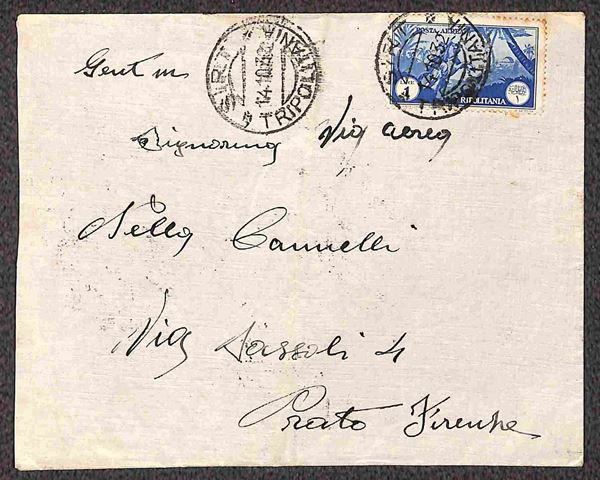 Gent ma
SIRTE
14.10.32
TRIPOLITANIA
POSTA AEREA
LIRE
4
TRIPOLITANIA
1
TRIPOLITANIA
Signorina Via aerea
Nella Cannelli
Via Sassoli 4
Prato Firenze